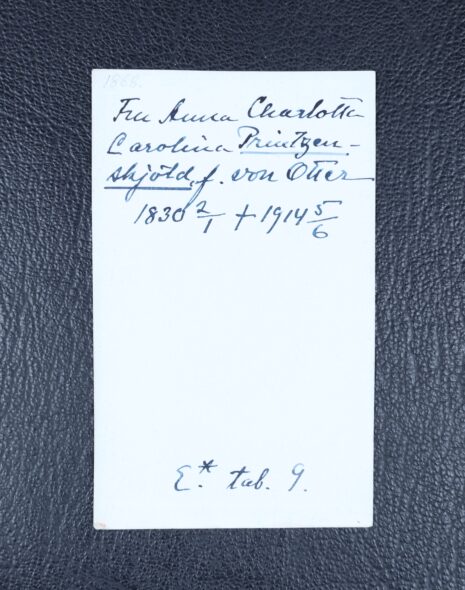 1868.
Fru Anna Charlotta
Carolina Printzen-
skjöld, f. von Otter
1830 2/1 † 1914 5/6
E.* tab. 9.